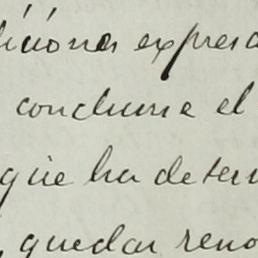 diciones expresa
concluirse el
que ha de term
, quedar reno